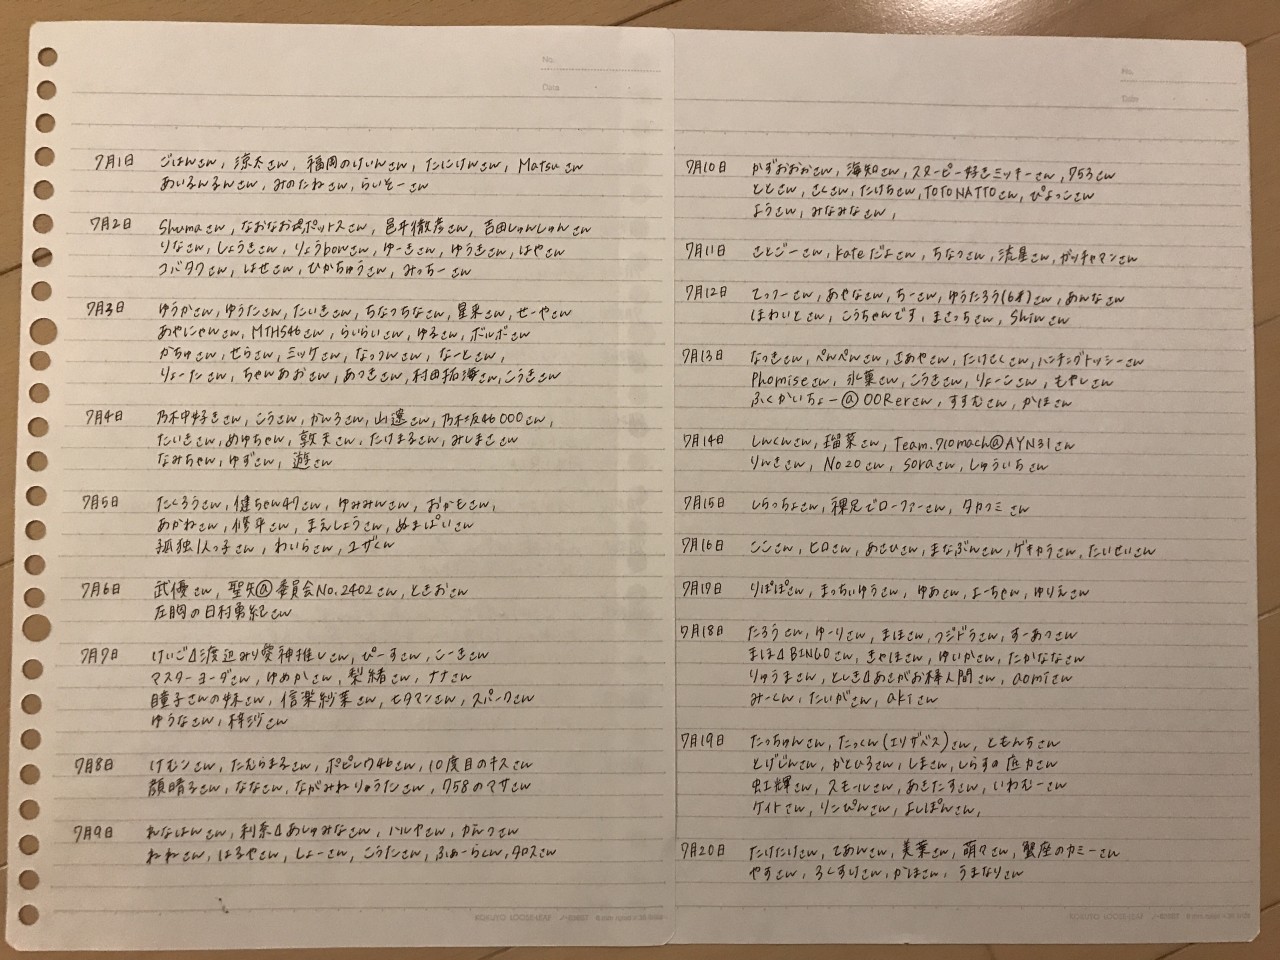 No.
Date
7月1日 ごはんさん, 涼太さん, 福岡のけいんさん, たにけんさん, Matsuさん
あいるんるんさん, みのたねさん, らいぞーさん
7月2日 Shumaさん, なおなお@ポットスさん, 邑井徹彦さん, 吉田しゅんしゅんさん
りなさん, しょうきさん, りょうbonさん, ゆーきさん, ゆうきさん, はやさん
コバタクさん, はせさん, ぴかちゅうさん, みっちーさん
7月3日 ゆうかさん, ゆうたさん, たいきさん, ちなつちなさん, 星来さん, せーやさん
あやにゃんさん, MTHS46さん, らいらいさん, ゆるさん, ボルボーさん
かちゅさん, せらさん, ミッケさん, なっつんさん, なーとさん,
りょーたさん, ちゃんあおさん, あつきさん, 村田拓海さん, こうきさん
7月4日 乃木中好きさん, こうさん, かんろさん, 山邊さん, 乃木坂46000さん,
たいきさん, めゆちゃん, 敦天さん, たけまるさん, みしまささん
なみちゃん, ゆずさん, 遊さん
7月5日 たくろうさん, 健ちゃん47さん, ゆみみんさん, おかもさん,
あかねさん, 修平さん, まえしょうさん, ぬまぱいさん
孤独1人っ子さん, わいらさん, ユザくん
7月6日 武優さん, 聖矢@委員会No.2402さん, ときおさん
左胸の日村勇紀さん
7月7日 けいご⊿渡辺みり愛神推しさん, ぴーすさん, こーきさん
マスターヨーダさん, ゆめかさん, 梨緒さん, ナナさん
瞳子さんの妹さん, 信楽紗菜さん, セタマンさん, スパークさん
ゆうなさん, 梓沙さん
7月8日 けむンさん, たむらまろさん, ポピレワ46さん, 10度目のキスさん
顔晴るさん, ななさん, ながみねりゅうたさん, 758のマサさん
7月9日 れなはんさん, 利糸⊿あしゅみなさん, ハルやさん, がみつさん
ねねさん, はるやさん, しょーさん, こうたさん, ふぁーらくん, タロスさん
No.
Date
7月10日 かずおおおさん, 海知さん, スヌーピー好きミッキーさん, 753さん
ととさん, さくさん, たけちさん, TOTONATTOさん, ぴよっこさん
ようさん, みなみなさん,
7月11日 ことごーさん, Kateだよさん, ちなつさん, 流星さん, ガッチャマンさん
7月12日 てっつーさん, あやなさん, ちーさん, ゆうたろう(6才)さん, あんなさん
ほわいとさん, こうちゃんです, まさっちさん, Shinさん
7月13日 なつきさん, ぺんぺんさん, さあやさん, たけさくさん, ハンチングトッシーさん
Phomiseさん, 氷菓さん, こうきさん, りょーこさん, もやしさん
ふくかいちょー@OORerさん, すすむさん, かほさん
7月14日 しんくんさん, 瑠菜さん, Team.710mach@AYN31さん
りんきさん, No20さん, soraさん, しゅういちさん
7月15日 しらっちょさん, 裸足でローファーさん, タカフミさん
7月16日 ここさん, ヒロさん, あさひさん, まなぶんさん, ゲキカラさん, たいせいさん
7月17日 りぽぽさん, まっちぃゆうさん, ゆあさん, よーちゃん, ゆりえさん
7月18日 たろうさん, ゆーりさん, まほさん, フジドラさん, すーあつさん
まほ⊿BINGOさん, きゃほさん, ゆいかさん, たかななさん
りゅうまさん, としき⊿あさがお棒人間さん, aomiさん
みーくん, たいがさん, akiさん
7月19日 たっちゅんさん, たっくん(エリザベス)さん, ともんちさん
とげじんさん, かとひろさん, しまさん, しらすの圧力さん
虹輝さん, スモールさん, あきたすさん, いわむーさん
ケイトさん, リンぴんさん, よしぽんさん,
7月20日 たけたけさん, てあんさん, 美葉さん, 萌々さん, 蟹座のカミーさん
やすさん, ろくすけさん, かほさん, うまなりさん